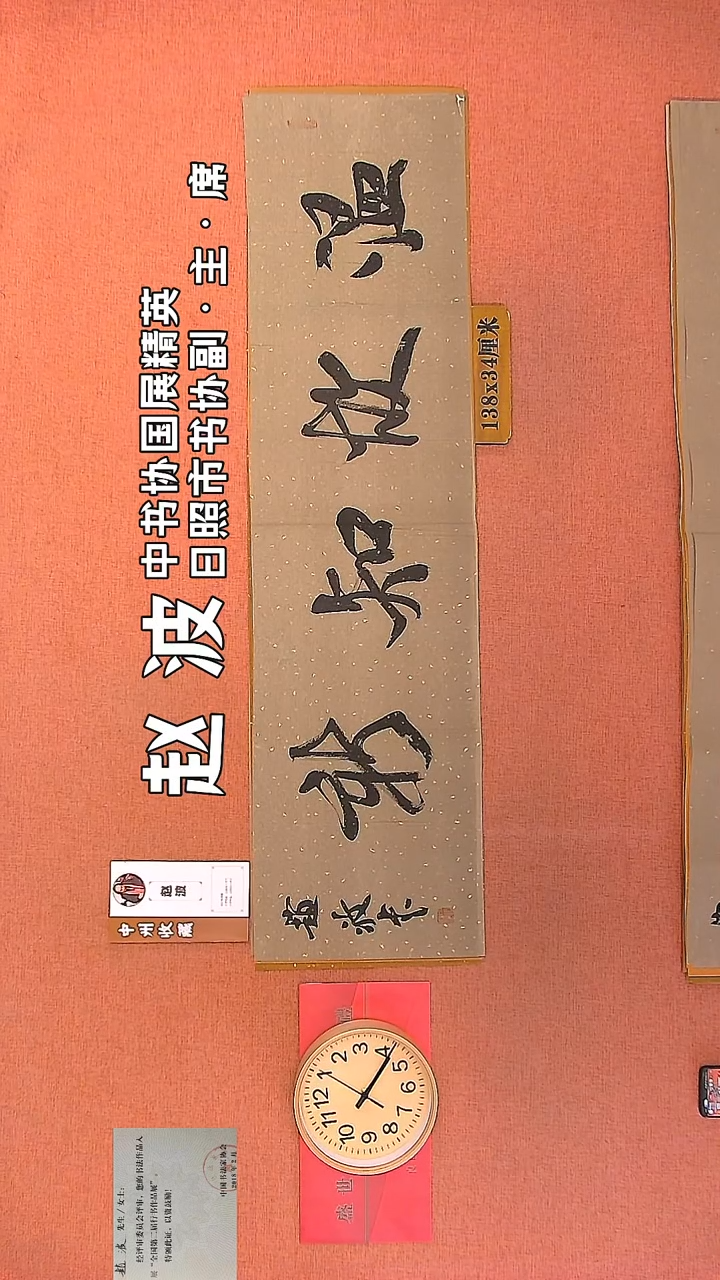 赵 波
中书协国展精英
日照市书协副·主·席
温故知新
趙波书
138x34厘米
赵波
中州收藏
12
1
2
3
4
5
6
7
8
9
10
11
盛世
赵波 先生/女士:
经评审委员会评审，您的书法作品入
展“全国第二届行书作品展”。
特颁此证，以资鼓励!
中国书法家协会